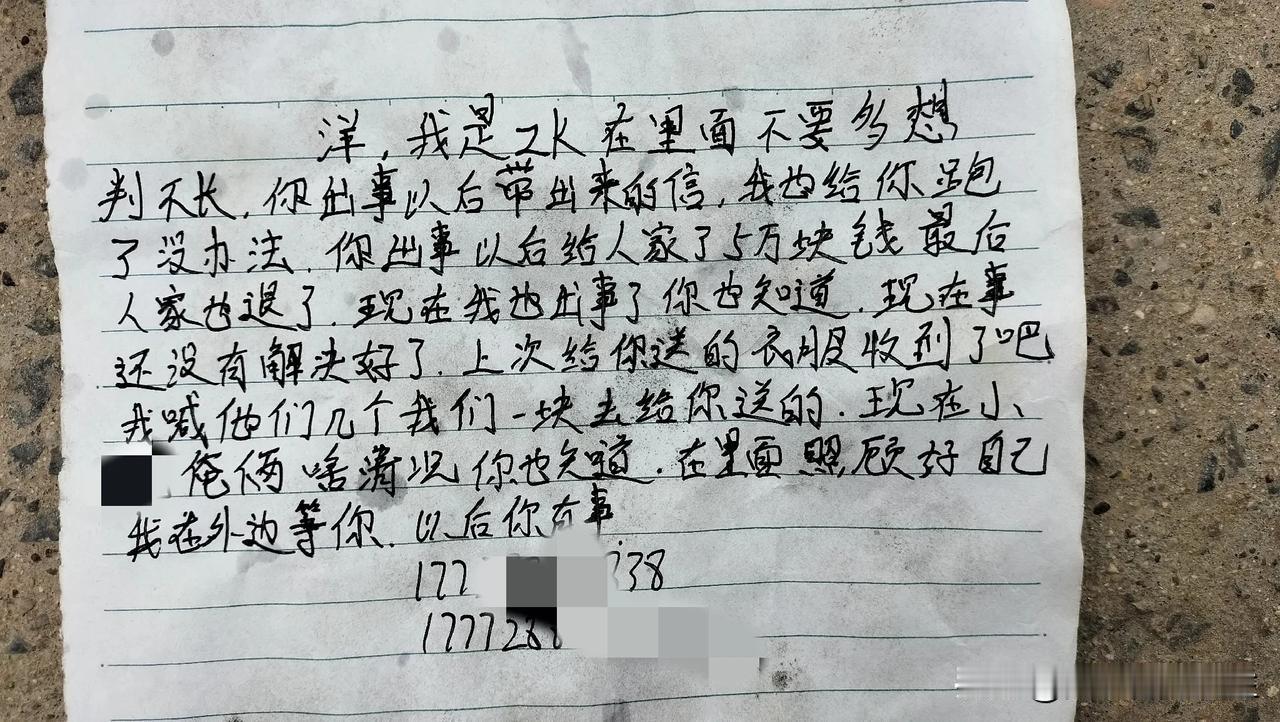 洋,我是ZK在里面不要多想
判不长.你出事以后带出来的信,我也给你跑
了没办法.你出事以后给人家了5万块钱最后
人家也退了.现在我也出事了你也知道.现在事
还没有解决好了.上次给你送的衣服收到了吧
我喊他们几个我们一块去给你送的.现在小
俺俩啥情况你也知道.在里面照顾好自己
我在外边等你.以后你有事.
177 338
1777288